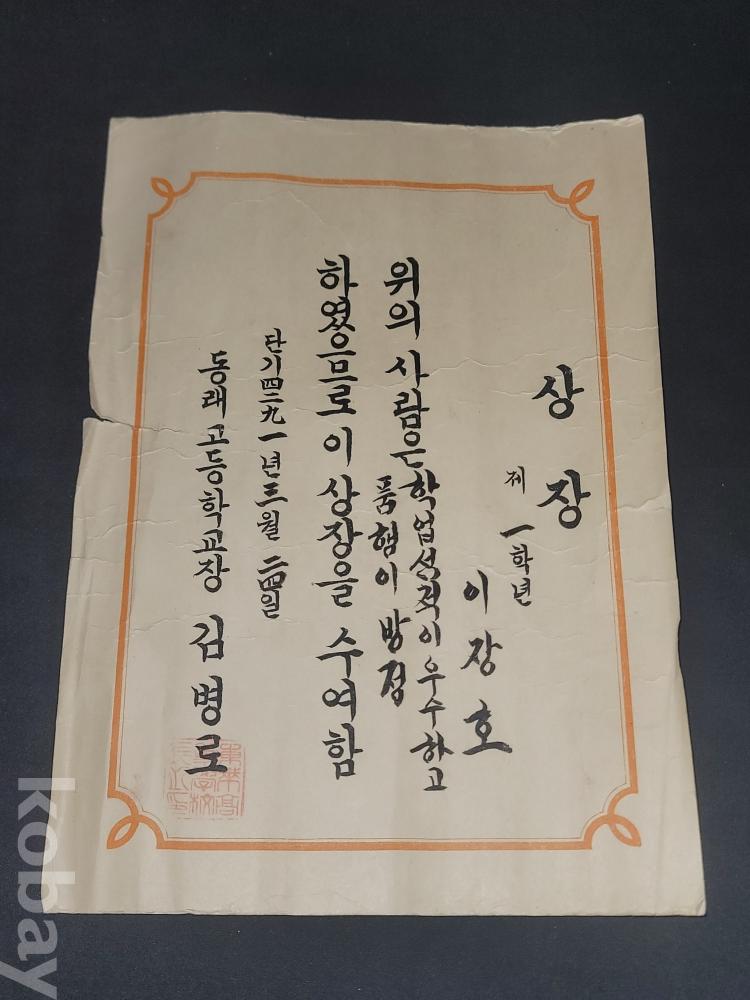 상장
제一학년
이장호
위의 사람은 학업성적이 우수하고
품행이 방정
하였음므로 이 상장을 수여함
단기四二九一년 三월 二四일
동래고등학교장 김병로
kobay